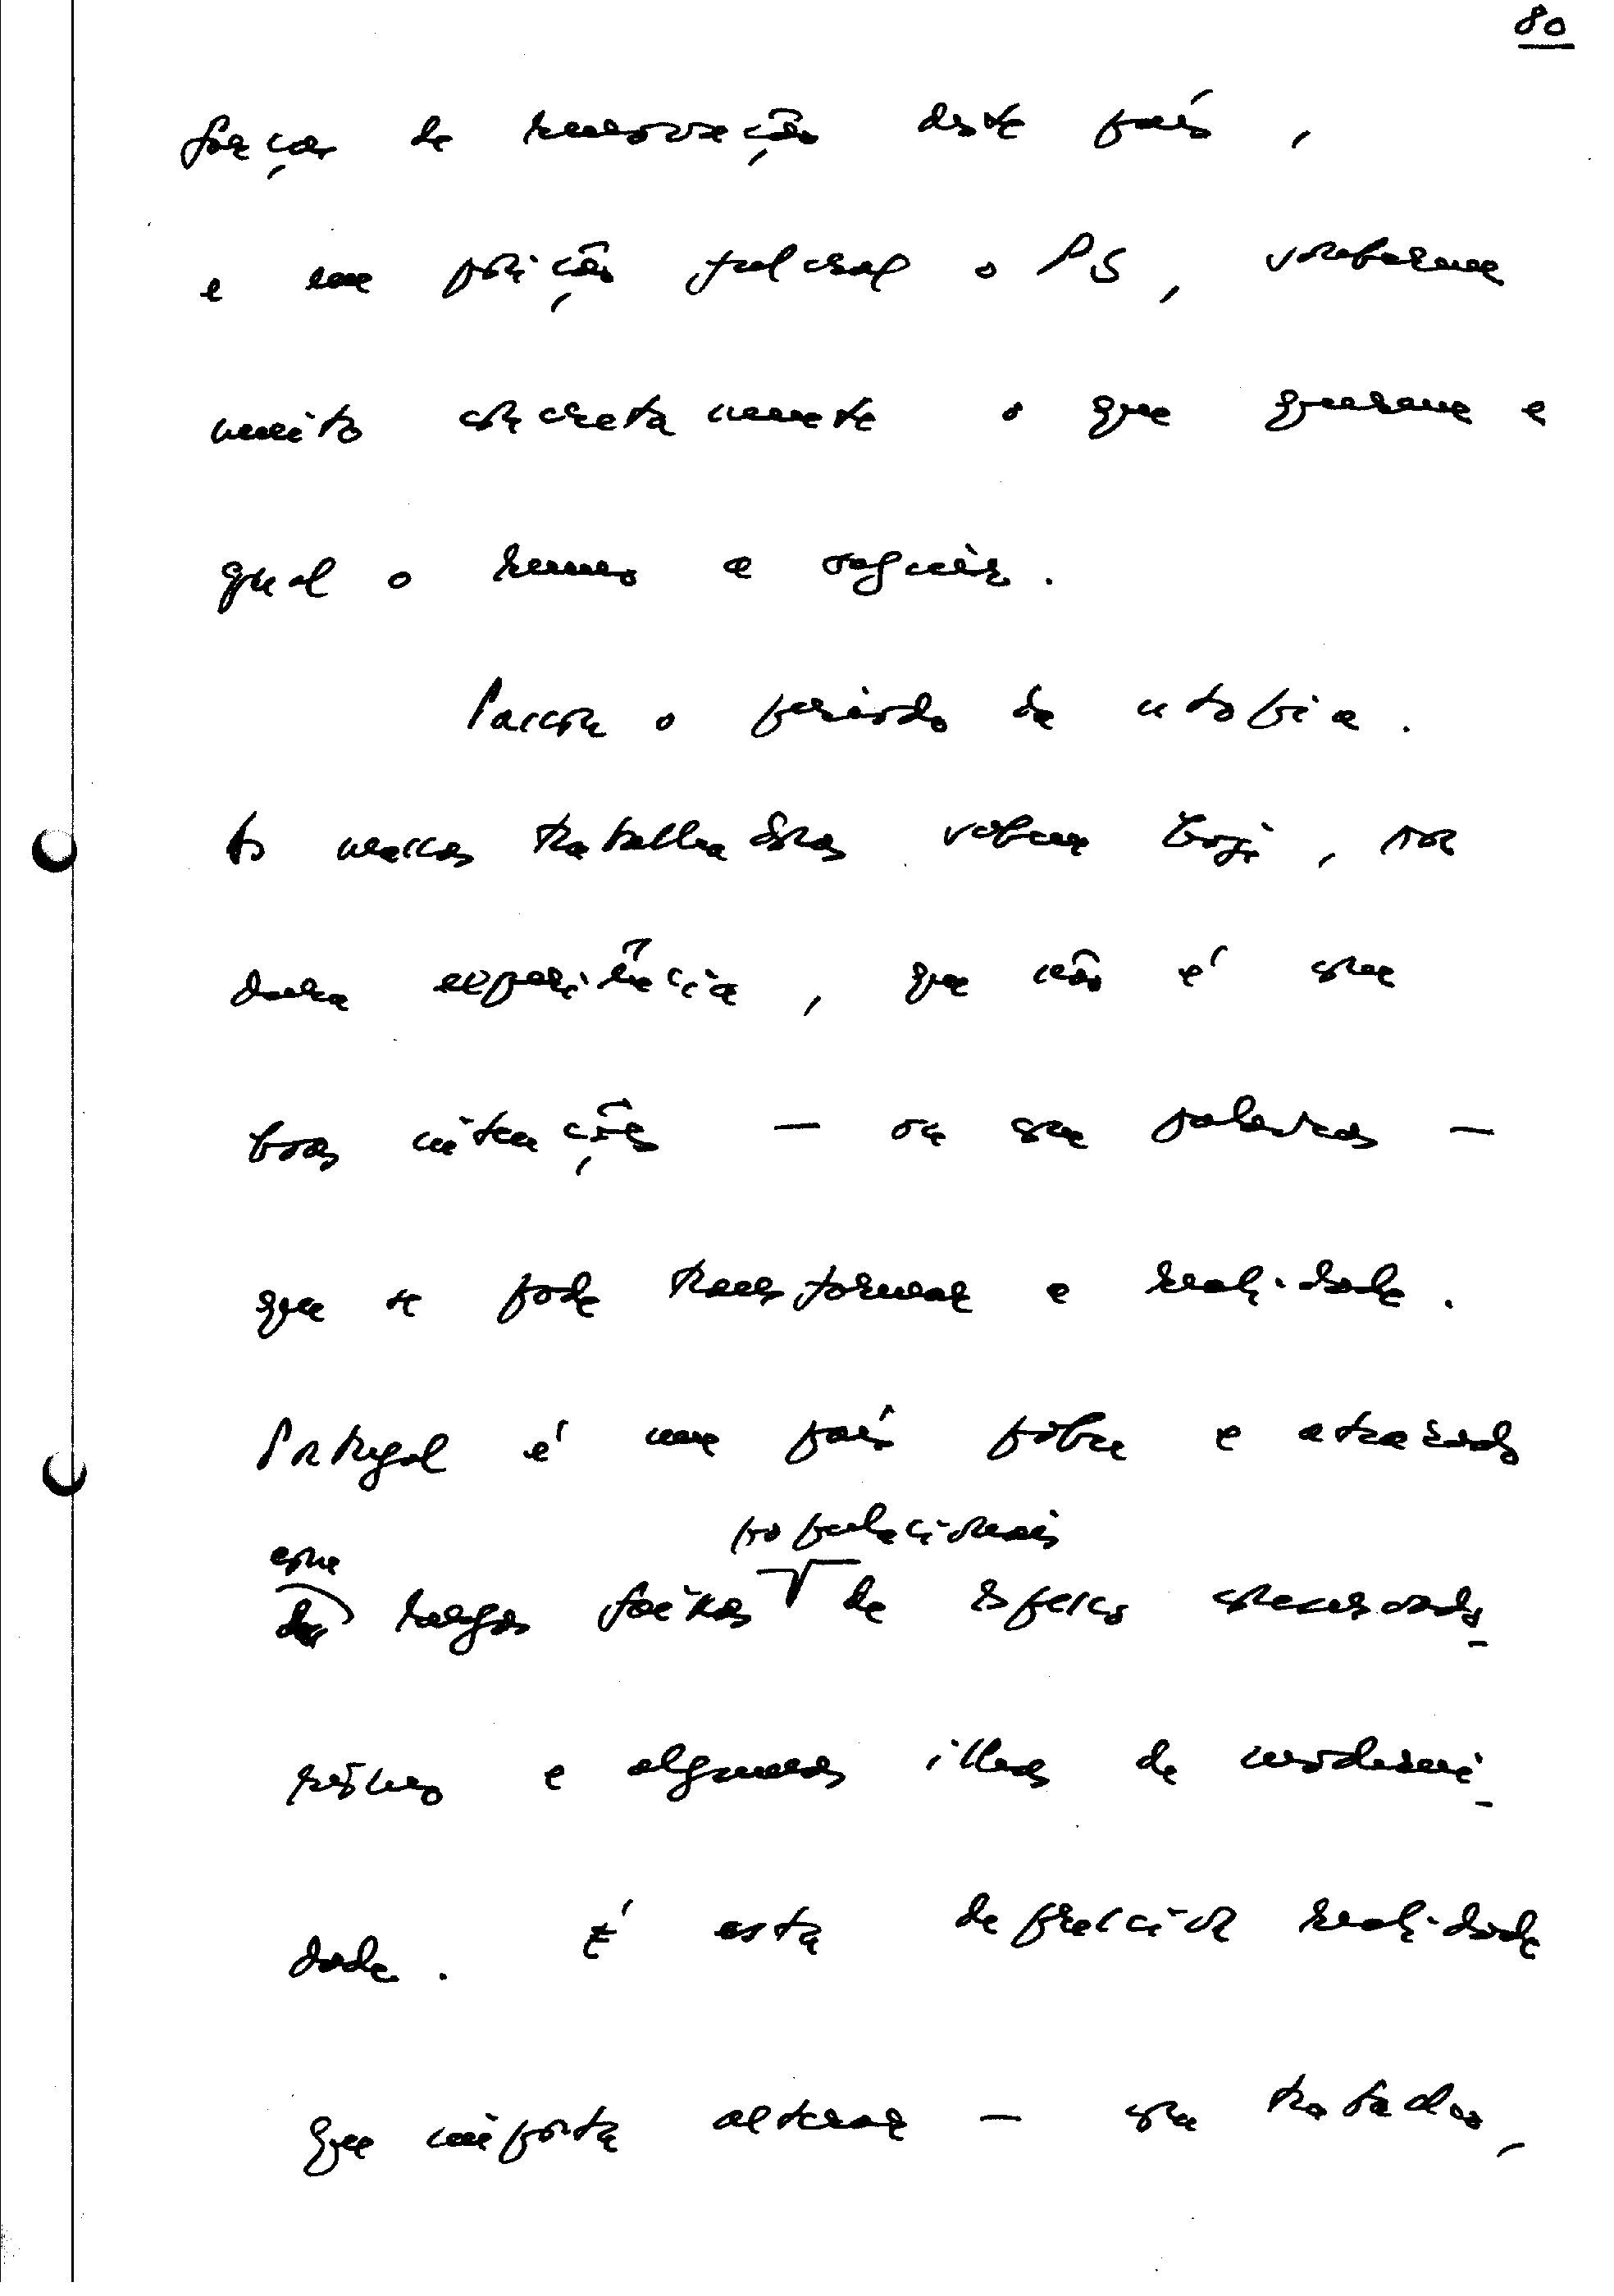 80
forças de renovação deste país,
e em posição fulcral o PS, 
muito concretamente o que querem e
qual o rumo a seguir.
Passou o período da utopia.
As massas trabalhadoras sabem hoje, por
dura experiência, que não é com
boas intenções — ou com palavras —
que se pode transformar a realidade.
Portugal é um país pobre e atrasado
com populacionais
largas faixas de 
e algumas ilhas de moderni-
dade. É esta realidade
que importa alterar — com trabalho,